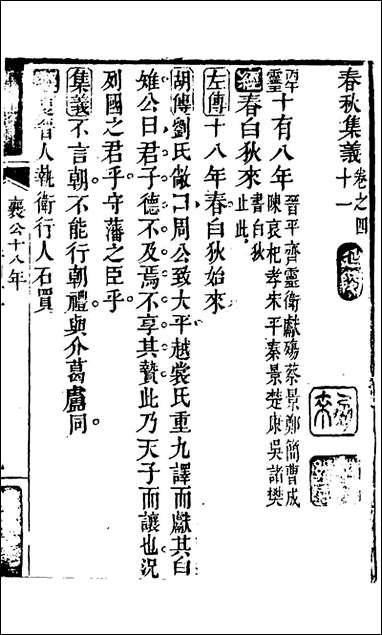 春秋集義卷之四十一
靈丙午十有八年晉平齊靈衛獻殤蔡景鄭簡曹成陳哀杞孝宋平秦景楚康吳諸樊
經春白狄來白狄書止此
左傳十八年春白狄始來
胡傳劉氏敞曰周公致太平越裳氏重九譯而獻其白
雉公曰君子德不及焉不享其贄此乃天子而讓也況
列國之君乎守藩之臣乎
集義不言朝不能行朝禮與介葛盧同
夏晉人執衛行人石買
襄公十八年